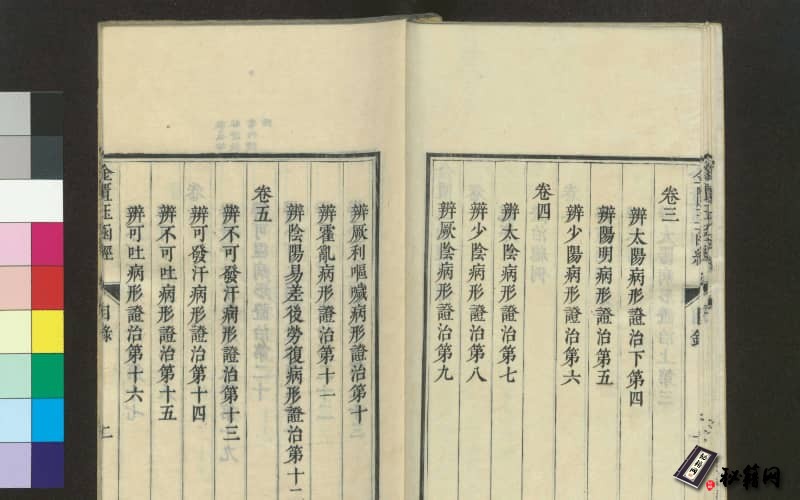 卷三
辨太陽病形證治下第四
辨陽明病形證治第五
辨少陽病形證治第六
卷四
辨太陰病形證治第七
辨少陰病形證治第八
辨厥陰病形證治第九
辨厥利嘔噦病形證治第十
辨霍亂病形證治第十一
辨陰陽易差後勞復病形證治第十二
卷五
辨不可發汗病形證治第十三
辨可發汗病形證治第十四
辨不可吐病形證治第十五
辨可吐病形證治第十六
金匱玉函經
目錄
上
金匱玉函經
目錄
秘籍网